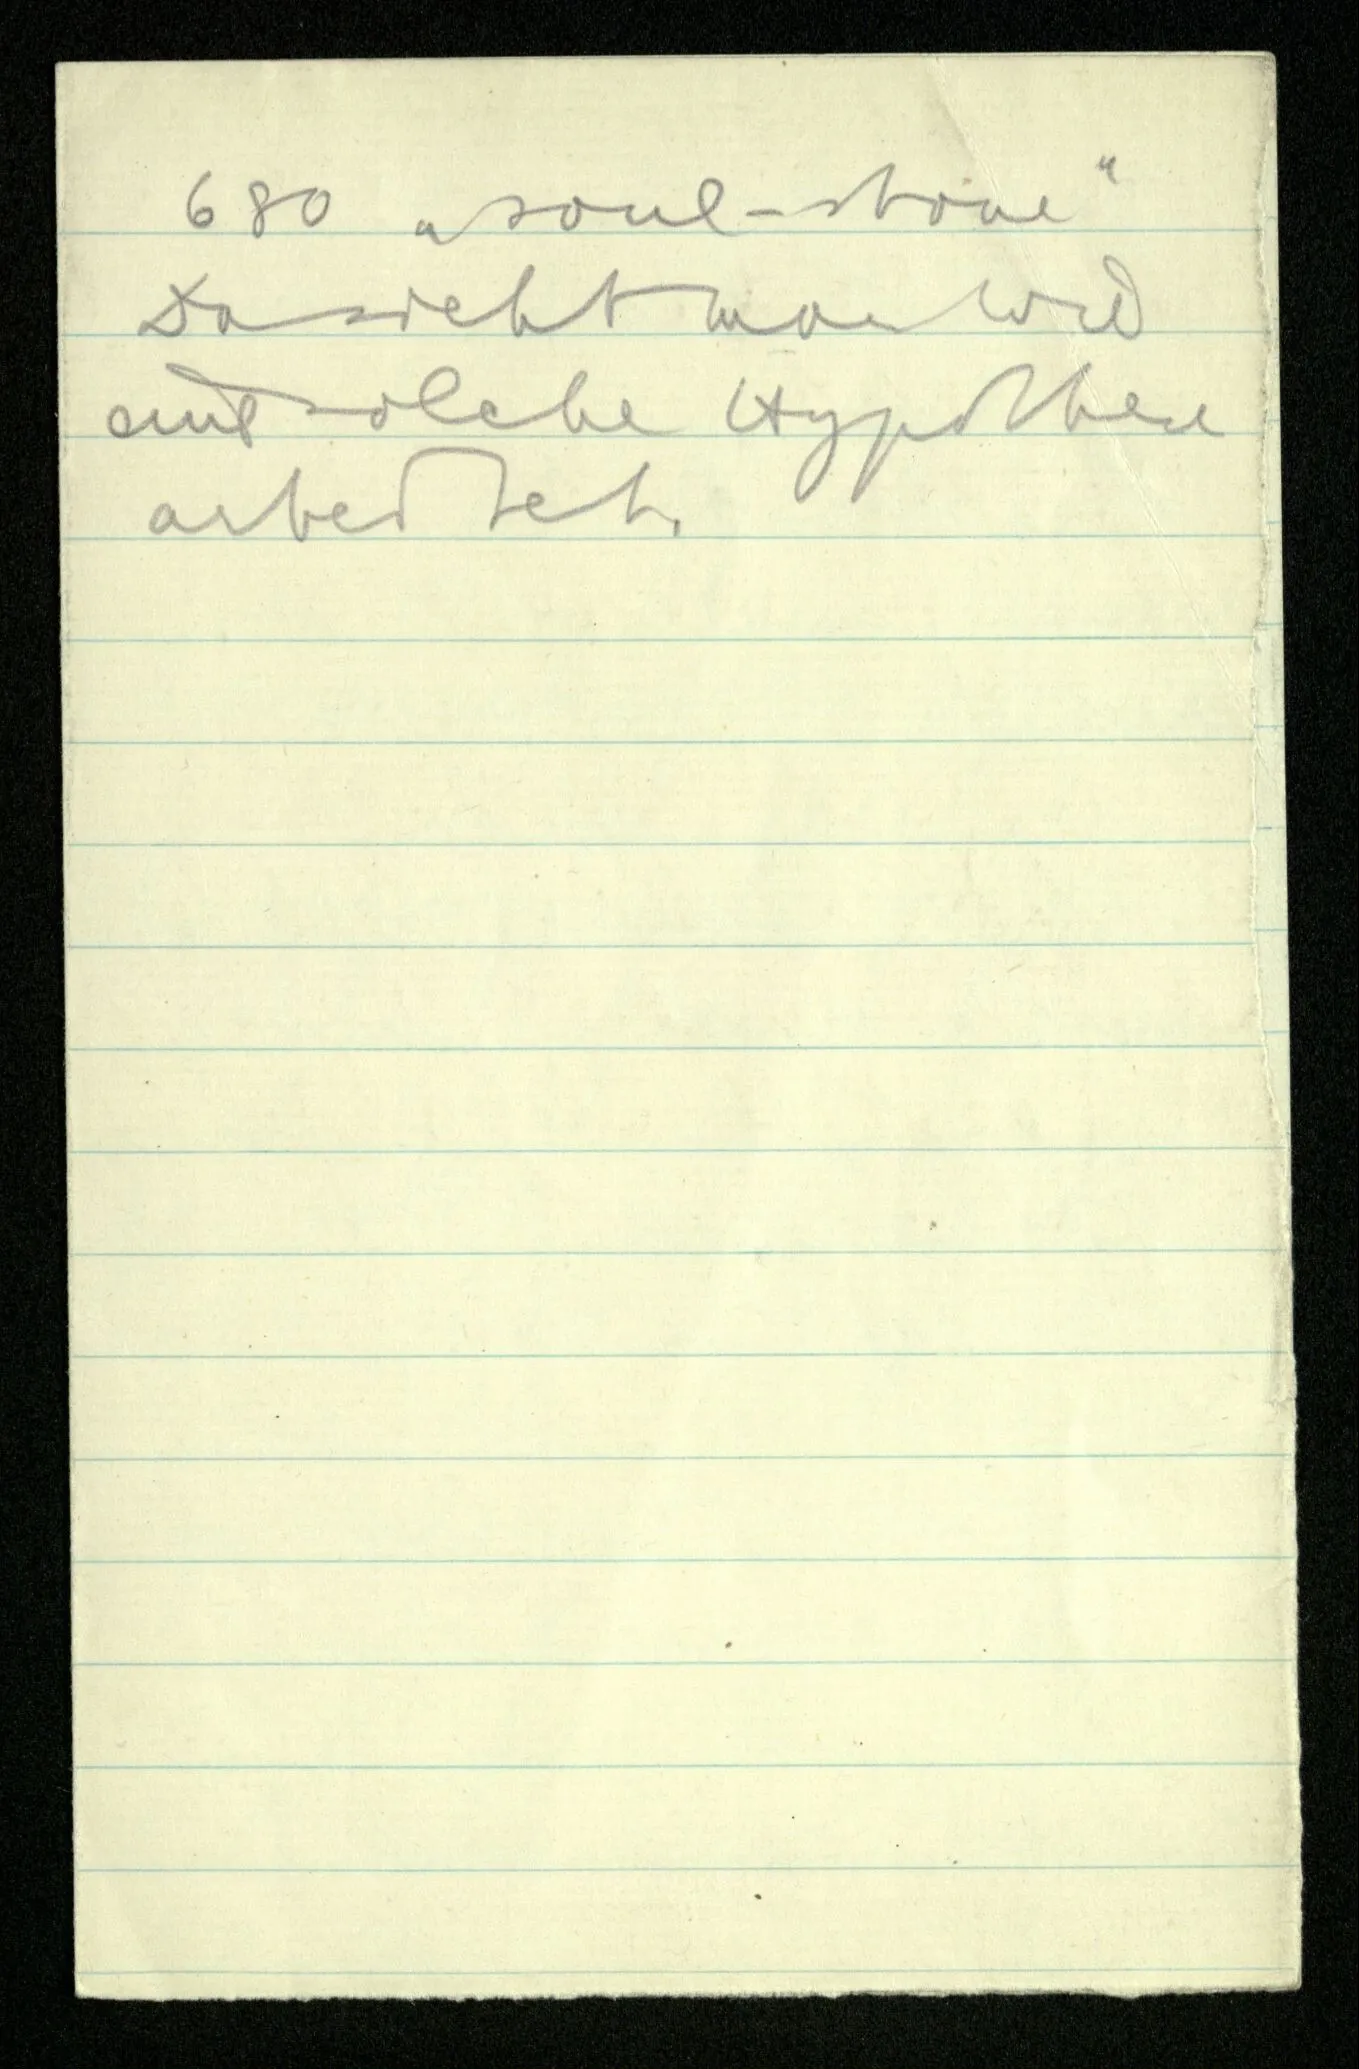 680 „soul-stone"
Da sieht man wie
eine solche Hypothese
arbeitet.